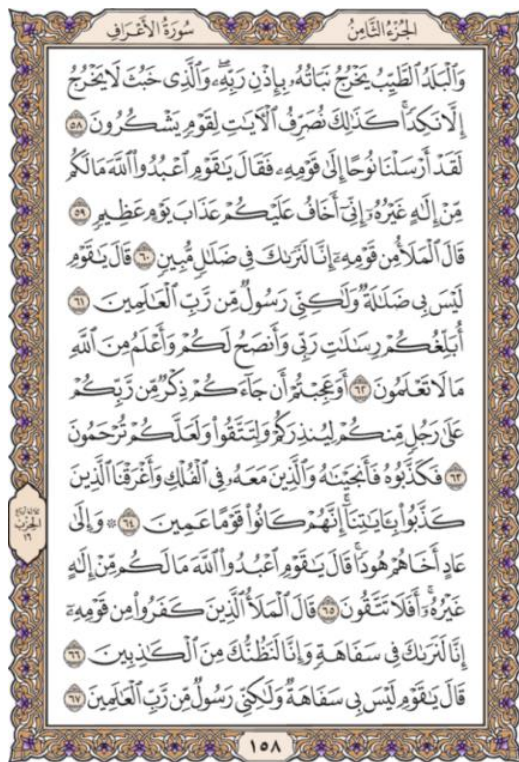 سُورَةُ الأَعۡرَافِ
الجُزۡءُ الثَّامِنُ
وَٱلۡبَلَدُ ٱلطَّيِّبُ يَخۡرُجُ نَبَاتُهُۥ بِإِذۡنِ رَبِّهِۦۖ وَٱلَّذِى خَبُثَ لَا يَخۡرُجُ
إِلَّا نَكِدٗاۚ كَذَٰلِكَ نُصَرِّفُ ٱلۡأٓيَٰتِ لِقَوۡمٖ يَشۡكُرُونَ ٥٨
لَقَدۡ أَرۡسَلۡنَا نُوحًا إِلَىٰ قَوۡمِهِۦ فَقَالَ يَٰقَوۡمِ ٱعۡبُدُواْ ٱللَّهَ مَا لَكُم
مِّنۡ إِلَٰهٍ غَيۡرُهُۥٓ إِنِّىٓ أَخَافُ عَلَيۡكُمۡ عَذَابَ يَوۡمٍ عَظِيمٖ ٥٩
قَالَ ٱلۡمَلَأُ مِن قَوۡمِهِۦٓ إِنَّا لَنَرَىٰكَ فِى ضَلَٰلٖ مُّبِينٖ ٦٠ قَالَ يَٰقَوۡمِ
لَيۡسَ بِى ضَلَٰلَةٞ وَلَٰكِنِّى رَسُولٞ مِّن رَّبِّ ٱلۡعَٰلَمِينَ ٦١
أُبَلِّغُكُمۡ رِسَٰلَٰتِ رَبِّى وَأَنصَحُ لَكُمۡ وَأَعۡلَمُ مِنَ ٱللَّهِ
مَا لَا تَعۡلَمُونَ ٦٢ أَوَعَجِبۡتُمۡ أَن جَآءَكُمۡ ذِكۡرٞ مِّن رَّبِّكُمۡ
عَلَىٰ رَجُلٖ مِّنكُمۡ لِيُنذِرَكُمۡ وَلِتَتَّقُواْ وَلَعَلَّكُمۡ تُرۡحَمُونَ
٦٣ فَكَذَّبُوهُ فَأَنجَيۡنَٰهُ وَٱلَّذِينَ مَعَهُۥ فِى ٱلۡفُلۡكِ وَأَغۡرَقۡنَا ٱلَّذِينَ
كَذَّبُواْ بِـَٔايَٰتِنَآۚ إِنَّهُمۡ كَانُواْ قَوۡمًا عَمِينَ ٦٤ ۞ وَإِلَىٰ
عَادٍ أَخَاهُمۡ هُودٗاۚ قَالَ يَٰقَوۡمِ ٱعۡبُدُواْ ٱللَّهَ مَا لَكُم مِّنۡ إِلَٰهٍ
غَيۡرُهُۥٓۚ أَفَلَا تَتَّقُونَ ٦٥ قَالَ ٱلۡمَلَأُ ٱلَّذِينَ كَفَرُواْ مِن قَوۡمِهِۦٓ
إِنَّا لَنَرَىٰكَ فِى سَفَاهَةٖ وَإِنَّا لَنَظُنُّكَ مِنَ ٱلۡكَٰذِبِينَ ٦٦
قَالَ يَٰقَوۡمِ لَيۡسَ بِى سَفَاهَةٞ وَلَٰكِنِّى رَسُولٞ مِّن رَّبِّ ٱلۡعَٰلَمِينَ ٦٧
الحِزۡب
١٦
١٥٨